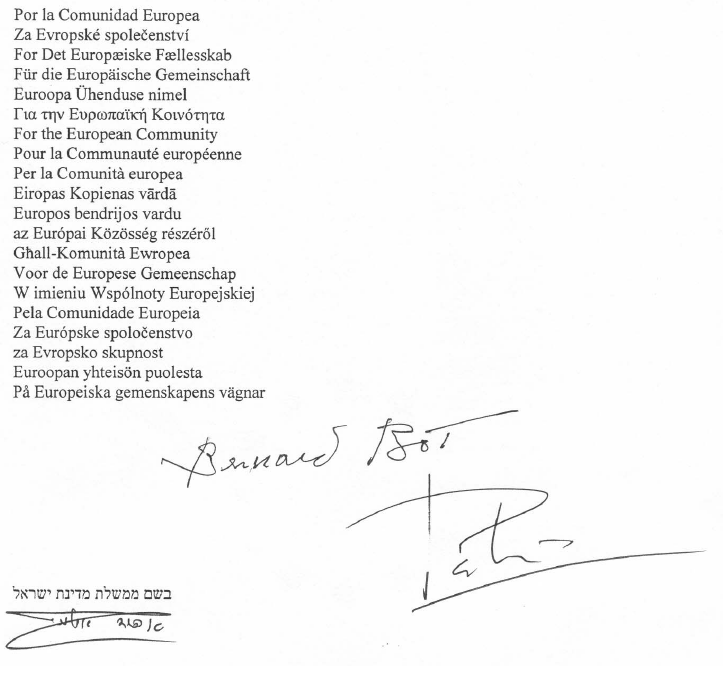 Por la Comunidad Europea
Za Evropské společenství
For Det Europæiske Fællesskab
Für die Europäische Gemeinschaft
Euroopa Ühenduse nimel
Για την Ευρωπαϊκή Κοινότητα
For the European Community
Pour la Communauté européenne
Per la Comunità europea
Eiropas Kopienas vārdā
Europos bendrijos vardu
az Európai Közösség részéről
Għall-Komunità Ewropea
Voor de Europese Gemeenschap
W imieniu Wspólnoty Europejskiej
Pela Comunidade Europeia
Za Európske spoločenstvo
za Evropsko skupnost
Euroopan yhteisön puolesta
På Europeiska gemenskapens vägnar
Bernard Bot
בשם ממשלת מדינת ישראל